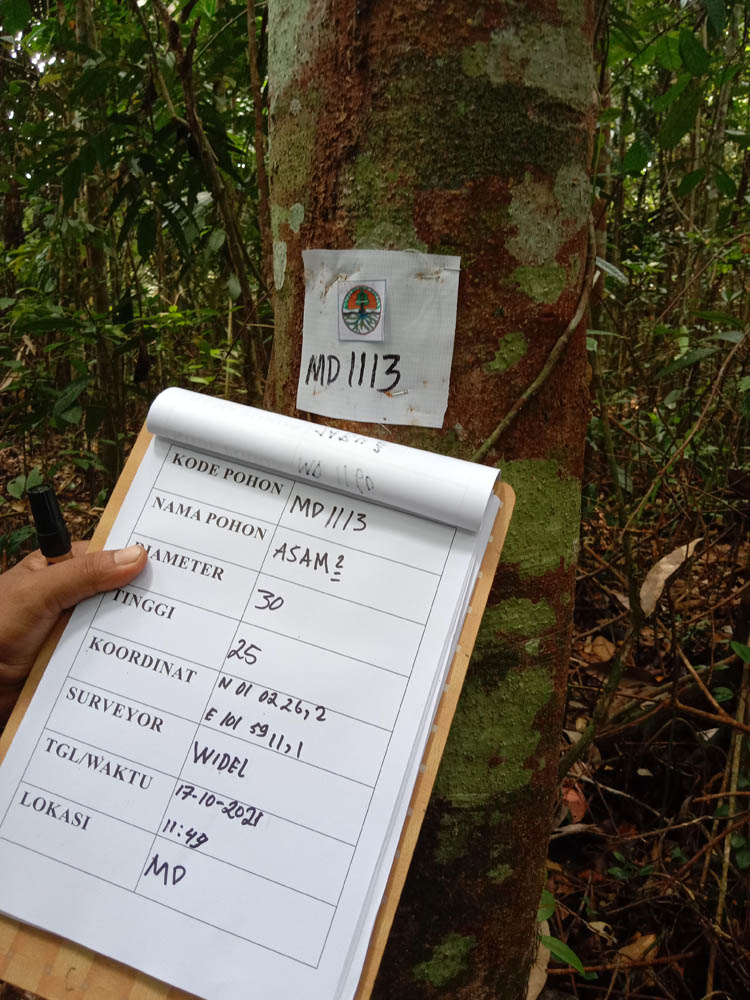 MD 1113
KODE POHON MD 1113
NAMA POHON ASAM²
DIAMETER 30
TINGGI 25
KOORDINAT N 01 02 26,2
E 101 59 11,1
SURVEYOR WIDEL
TGL/WAKTU 17-10-2021
11:49
LOKASI MD